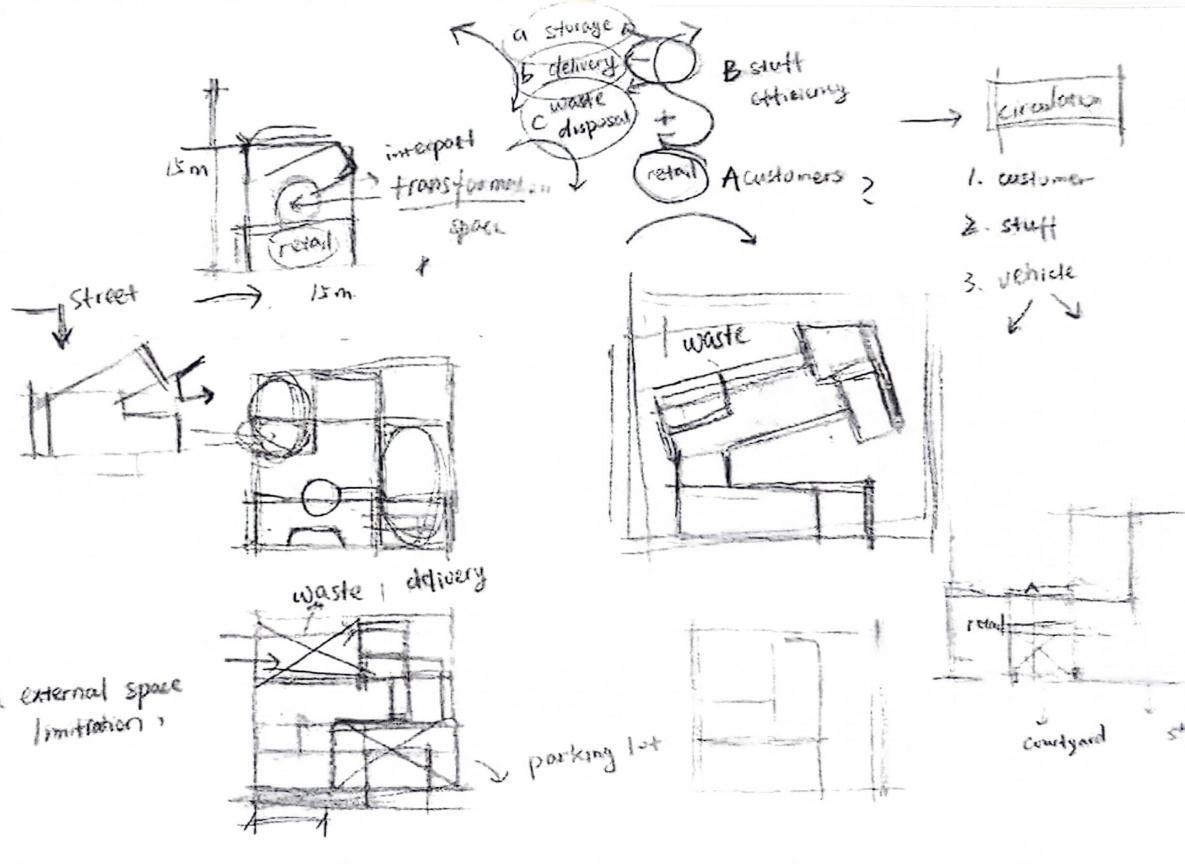 a storage
b delivery
c waste
disposal
+
retail
B stuff
efficiency
A customers ?
circulation
1. customer
2. stuff
3. vehicle
15m
interport
space
retail
15m
street
waste
waste | delivery
external space
parking lot
retail
A
courtyard